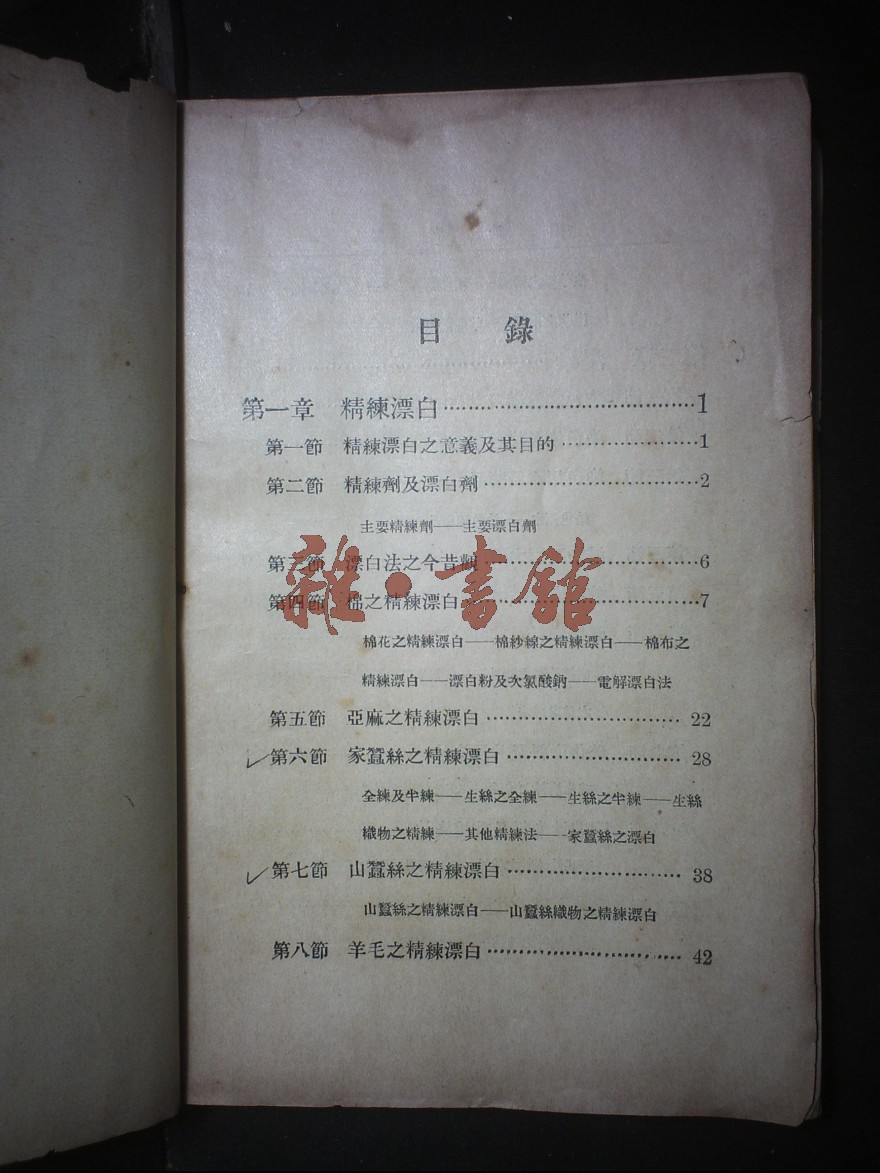 目錄
第一章 精練漂白……………………………………1
第一節 精練漂白之意義及其目的…………………1
第二節 精練劑及漂白劑……………………………2
主要精練劑——主要漂白劑
第三節 漂白法之今昔觀……………………………6
第四節 棉之精練漂白………………………………7
雜·書館
棉花之精練漂白——棉紗線之精練漂白——棉布之
精練漂白——漂白粉及次氯酸鈉——電解漂白法
第五節 亞麻之精練漂白…………………………22
第六節 家蠶絲之精練漂白………………………28
全練及半練——生絲之全練——生絲之半練——生絲
織物之精練——其他精練法——家蠶絲之漂白
第七節 山蠶絲之精練漂白………………………38
山蠶絲之精練漂白——山蠶絲織物之精練漂白
第八節 羊毛之精練漂白…………………………42